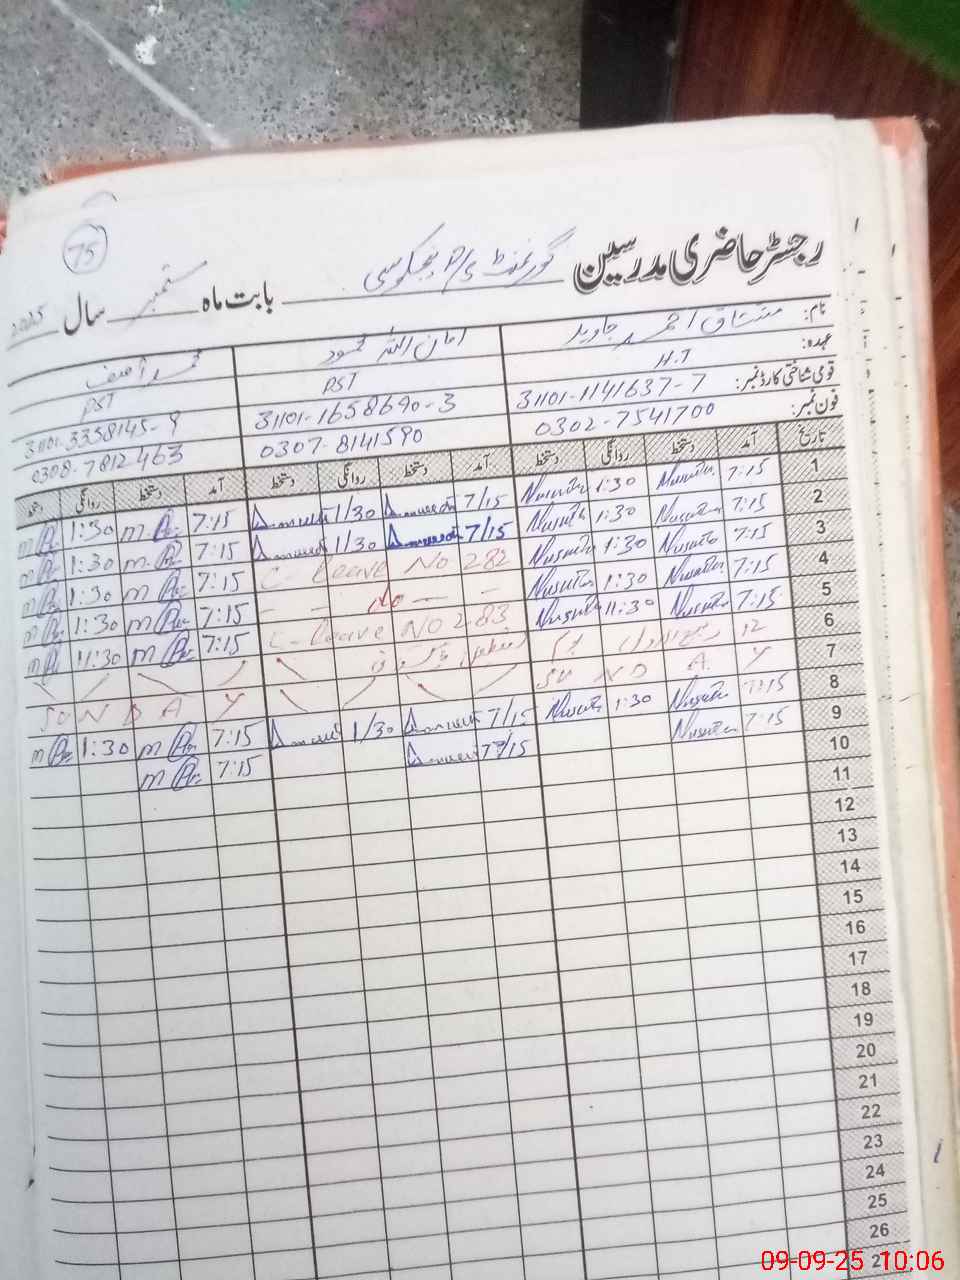 75
رجسٹر حاضری مدرسین گورنمنٹ P/S بابت ماہ ستمبر سال 2025
نام: مشتاق احمد جاوید امان اللہ محمود محمد آصف
عہدہ: H.T PST PST
قومی شناختی کارڈ نمبر: 31101-1141637-7 31101-1658690-3 31101-3358145-9
فون نمبر: 0302-7541700 0307-8141590 0308-7812463
تاریخ آمد دستخط روانگی دستخط آمد دستخط روانگی دستخط آمد دستخط روانگی دستخط
1 7:15 1:30 7/15 1/30 7:15 1:30
2 7:15 1:30 7/15 1/30 7:15 1:30
3 7:15 1:30 C-leave No 282 7:15 1:30
4 7:15 1:30 - - No - - 7:15 1:30
5 7:15 11:30 C-leave NO 283 7:15 11:30
6 12 ربیع الاول
7 SU N D A Y SU N D A Y
8 7:15 1:30 7/15 1/30 7:15 1:30
9 7:15 7/15 7:15
10
11
12
13
14
15
16
17
18
19
20
21
22
23
24
25
26
09-09-25 10:06